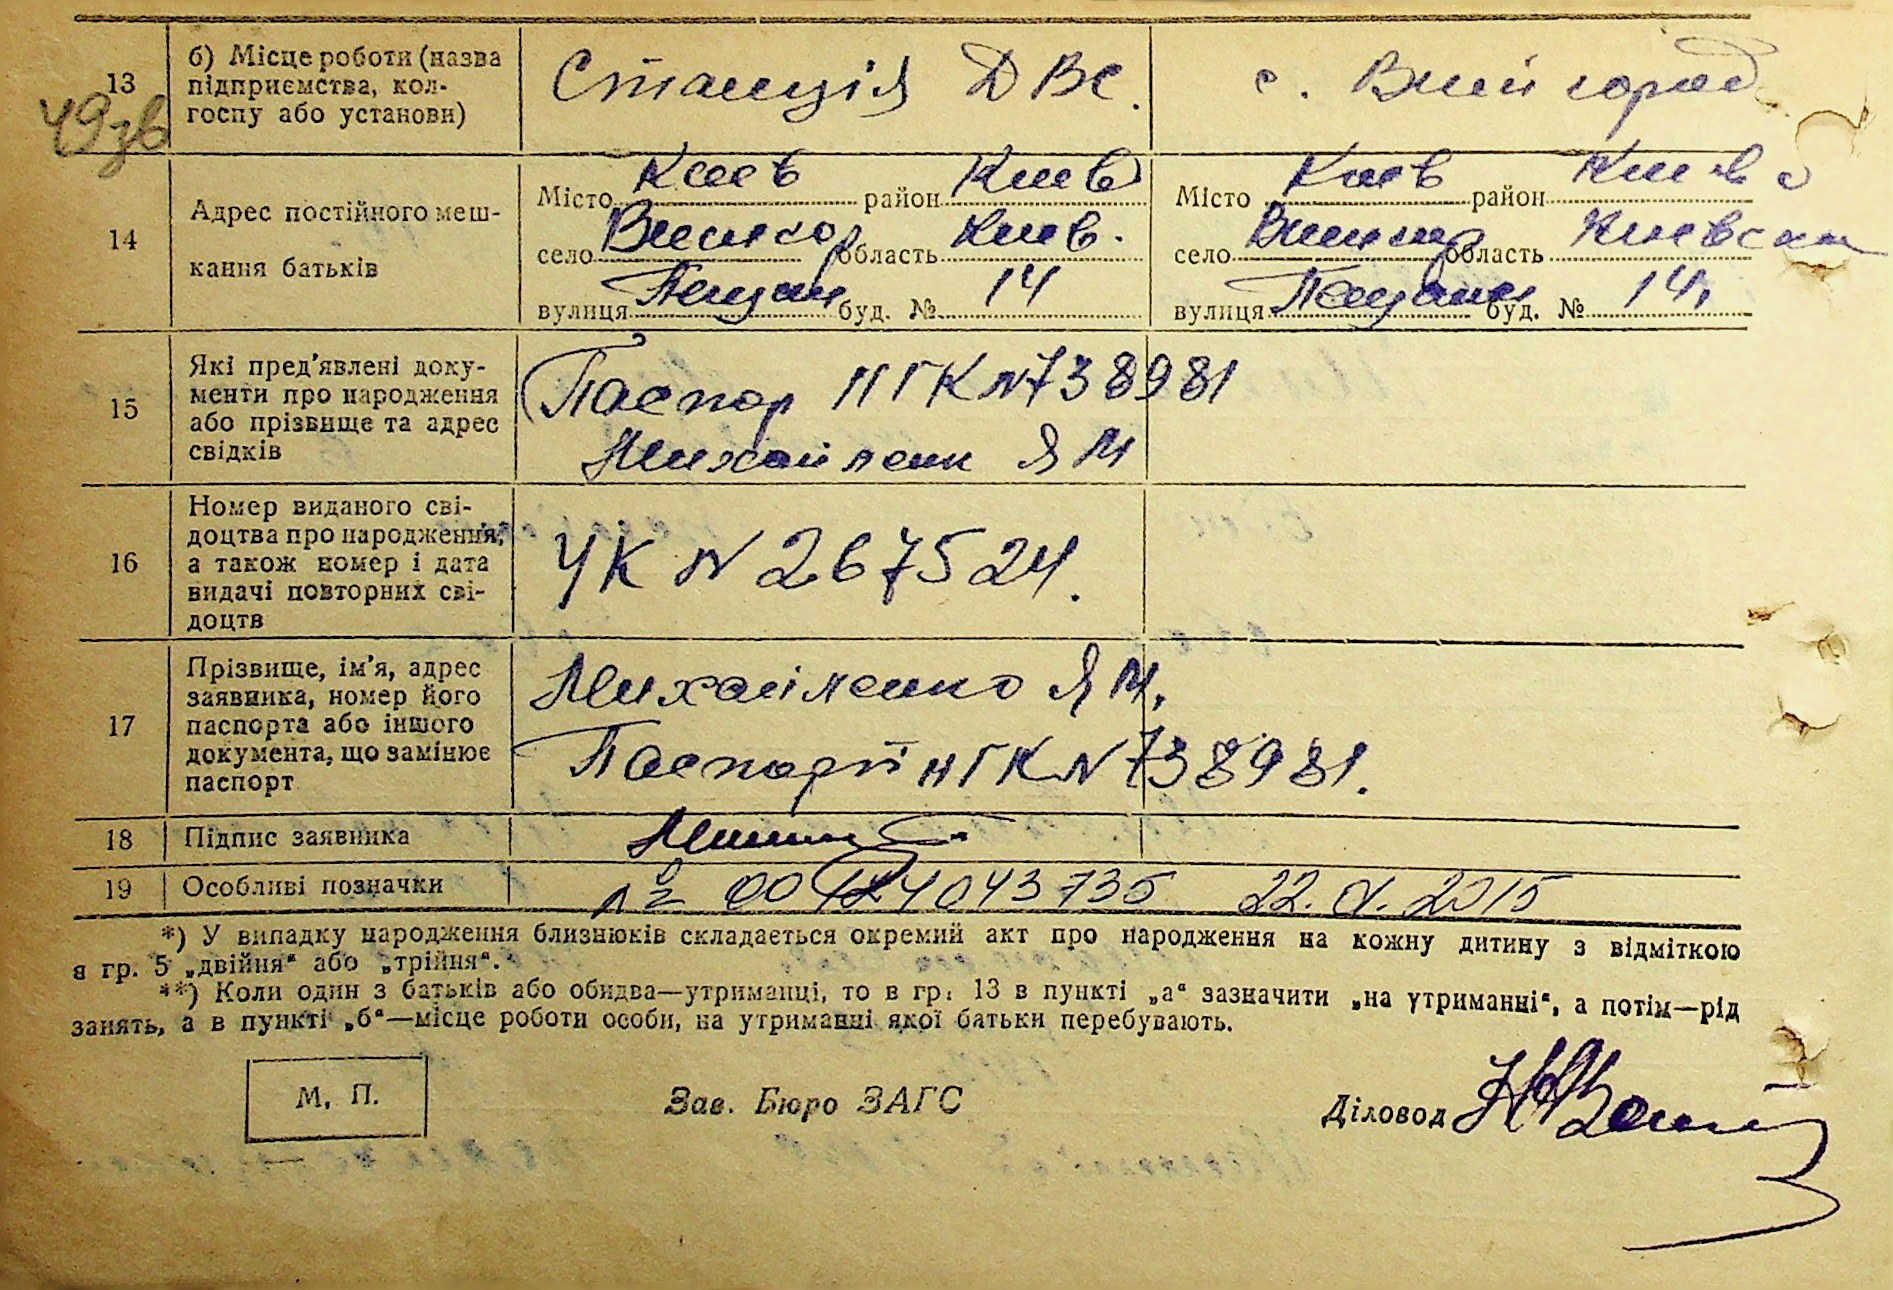 13 б) Місце роботи (назва підприємства, колгоспу або установи) Станція ДВС. с. Вышгород
49зв
14 Адрес постійного мешкання батьків
Місто Киев район Киев Місто Киев район Киево
село Вышгор область Киев. село Вышгор область Киевская
вулиця буд. № 14 вулиця буд. № 14,
15 Які пред'явлені документи про народження або прізвище та адрес свідків
Паспор НГК №738981
Михайленк Я М
16 Номер виданого свідоцтва про народження, а також номер і дата видачі повторних свідоцтв
УК № 267524.
17 Прізвище, ім'я, адрес заявника, номер його паспорта або іншого документа, що замінює паспорт
Михайленко Я М.
Паспорт НГК №738981.
18 Підпис заявника
19 Особливі позначки 22. 2015
*) У випадку народження близнюків складається окремий акт про народження на кожну дитину з відміткою
в гр. 5 „двійня" або „трійня".
**) Коли один з батьків або обидва—утриманці, то в гр. 13 в пункті „а" зазначити „на утриманні", а потім—рід
занять, а в пункті „б"—місце роботи особи, на утриманні якої батьки перебувають.
М. П. Зав. Бюро ЗАГС Діловод